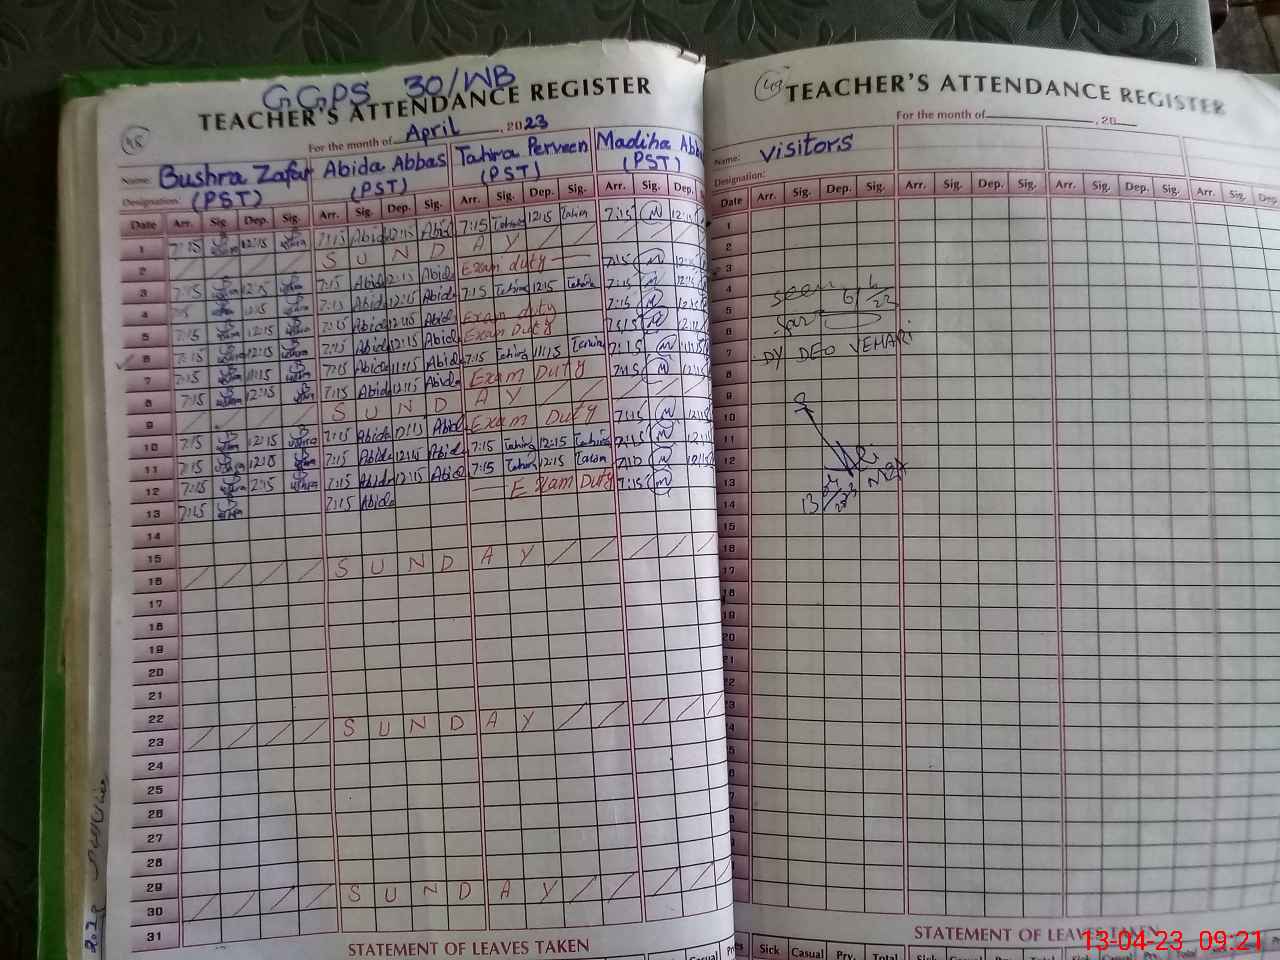 G.G.PS 30/WB
TEACHER'S ATTENDANCE REGISTER
48
For the month of April, 2023
Name: Bushra Zafar Abida Abbas Tahira Perveen Madiha Abb
Designation: (PST) (PST) (PST) (PST)
Date Arr. Sig. Dep. Sig. Arr. Sig. Dep. Sig. Arr. Sig. Dep. Sig. Arr. Sig. Dep.
1 7:15 12:15 7:15 Abida 12:15 Abida 7:15 Tahira 12:15 Tahira 7:15 M 12:15
2 S U N D A Y
3 7:15 12:15 7:15 Abida 12:15 Abida Exam duty 7:15 M 12:15
4 7:15 12:15 7:15 Abida 12:15 Abida 7:15 Tahira 12:15 Tahira 7:15 M 12:15
5 7:15 12:15 7:15 Abida 12:15 Abida Exam duty 7:15 M
6 7:15 12:15 7:15 Abida 12:15 Abida Exam Duty 7:15 M 12:15
7 7:15 11:15 7:15 Abida 11:15 Abida 7:15 Tahira 11:15 Tahira 7:15 M 11:15
8 7:15 12:15 7:15 Abida 12:15 Abida Exam Duty 7:15 M 12:15
9 S U N D A Y
10 7:15 12:15 7:15 Abida 12:15 Abida Exam Duty 7:15 M 12:15
11 7:15 12:15 7:15 Abida 12:15 Abida 7:15 Tahira 12:15 Tahira 7:15 M
12 7:15 7:15 Abida 12:15 Abida 7:15 Tahira 12:15 M 12:15
13 7:15 7:15 Abida Exam Duty 7:15 M
14
15
16 S U N D A Y
17
18
19
20
21
22
23 S U N D A Y
24
25
26
27
28
29
30 S U N D A Y
31
STATEMENT OF LEAVES TAKEN
Casual
2023
49
TEACHER'S ATTENDANCE REGISTER
For the month of , 20
Name: visitors
Designation:
Date Arr. Sig. Dep. Sig. Arr. Sig. Dep. Sig. Arr. Sig. Dep. Sig. Arr. Sig. Dep
1
2
3
4 seen
5
6
7 DY DEO VEHARI
8
9
10
11
12
13 MEA
14 13
15
16
17
18
19
20
21
22
STATEMENT OF LEAVES TAKEN
Sick Casual Prv. Total Sick Casual Prv. Total Sick Casual Prv. Total
13-04-23 09:21